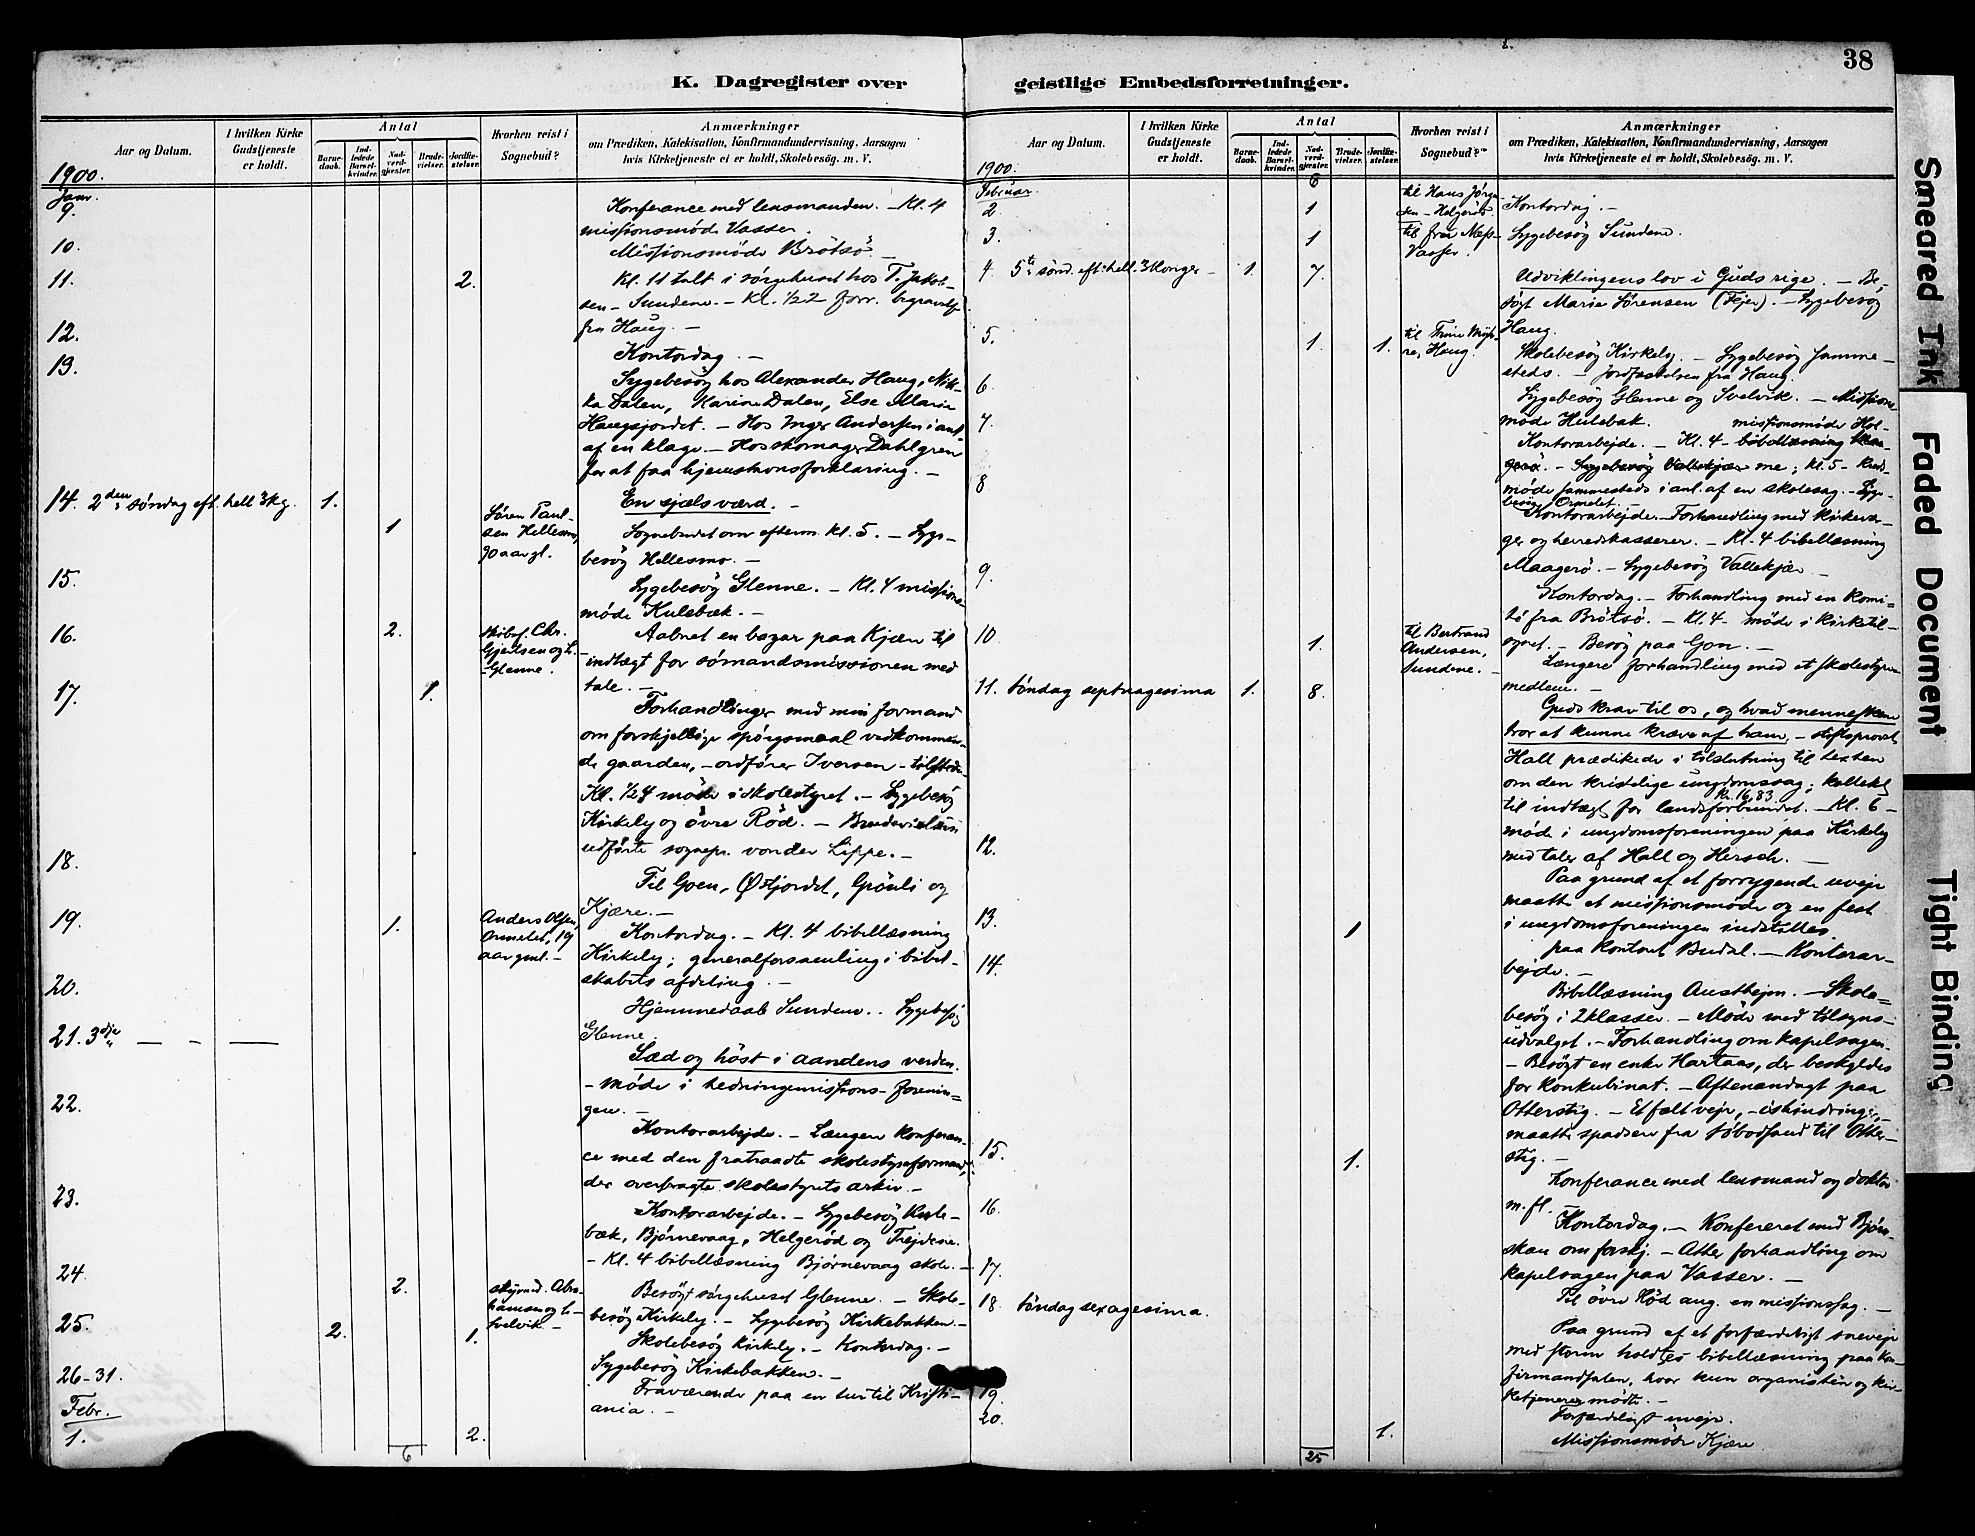 38
K. Dagregister over geistlige Embedsforretninger.
Aar og Datum.
I hvilken Kirke Gudstjeneste er holdt.
Antal
Barnedaab.
Indledede Barselkvinder.
Nadverdgjester.
Brudevielser.
Jordfæstelser.
Hvorhen reist i Sognebud?
Anmærkninger
om Prædiken, Katekisation, Konfirmandundervisning, Aarsagen
hvis Kirketjeneste ei er holdt, Skolebesög. m. V.
1900.
Janr.
9.
Konferance med lensmanden. – Kl. 4
missionsmøde Vasser.
10.
Missionsmøde Brötsö. –
11. 2.
Kl. 11 talt i sørgehuset hos T. Jakob-
sen – Sundene. – Kl. 1/2 2 forr. begravelse
fra Haug. –
12.
Kontordag. –
13.
Sygebesøg hos Alexander Haug, Nik-
ka Dalen, Karine Dalen, Else Marie
Haugsjordet. – Hos Inger Andersen i anl.
af en klage. – Hos skomager Dahlgren
for at faa hjemstavnsforklaring. –
14. 2den søndag eft. hell. 3 kg. 1.
En sjæls værd. –
1 Søren Paul-
sen Hellesmo,
90 aar gl.
Sognebudet om efterm. kl. 5. – Syge-
besøg Hellesmo. –
15.
Sygebesøg Glenne. – Kl. 4 missions-
møde Hulebæk. –
16. 2. Chr.
Gjertsen og h.
– Glenne.
Aabnet en bazar paa Kjære til
indtægt for sømandsmissionen med
tale. –
17. 1.
Forhandlinger med min formand
om forskjellige spørgsmaal vedkommen-
de gaarden, – ordfører Iversen – tilstede.
Kl. 1/2 4 møde i skolestyret. – Sygebesøg
Kirkely og övre Röd. – Brudevielsen
udførte sognepr. von der Lippe. –
18.
Til Goen, Østjordet, Grönli og
Kjære. –
19. 1. Anders Olsen,
Ormelet, 19
aar gml. –
Kontordag. – Kl. 4 bibellæsning
Kirkely; generalforsamling i bibel-
skabets afdeling. –
20.
Hjemmedaab Sundene. . Sygebesøg
Glenne.
21. 3dje „ — - —
Sæd og höst i aandens verden.
– Møde i hedningemissions-forenin-
gen. –
22.
Kontorarbejde. – Længere konferan-
ce med den fratraadte skolestyreformand,
der overbragte skolestyrets arkiv. –
23.
Kontorarbejde. – Sygebesøg Hule-
bæk, Bjørnevaag, Helgerød og Fejdene.
– Kl. 4 bibellæsning Bjørnevaag skole. –
24. 2. Abra-
hamsen og h. –
Svelvik –
Besögt sørgehuset Glenne. – Skole-
besøg Kirkely. – Sygebesøg Kirkebakken. –
25. 2. 1.
Skolebesøg Kirkely. – Kontordag. –
Sygebesøg Kirkebakken. –
26-31.
Fraværende paa en tur til Kristi-
ania. –
Febr.
1. 2.
6
Aar og Datum.
I hvilken Kirke Gudstjeneste er holdt.
Antal
Barnedaab.
Indledede Barselkvinder.
Nadverdgjester.
Brudevielser.
Jordfæstelser.
Hvorhen reist i Sognebud?
Anmærkninger
om Prædiken, Katekisation, Konfirmandundervisning, Aarsagen
hvis Kirketjeneste ei er holdt, Skolebesög. m. V.
1900.
Februar. 6
2. 1 til Hans Jørgen-
sen – Helgerød.
Kontordag. –
3. 1 til fru
Vasser.
Sygebesøg Sundene.
4. 5te sønd. eft. hell. 3 konger – 1. 7.
Udviklingens lov i Guds rige. – Be-
søgt Marie Sørensen (Fejer). – Sygebesøg
Haug.
5. 1. 1. til Trine
Haug.
Skolebesøg Kirkely. – Sygebesøg samme-
steds. – Jordfæstelsen fra Haug.
6
Sygebesøg Glenne og Svelvik. – Missions-
møde Hulebak.
7.
missionsmøde Hol-
Kontorarbejde. – Kl. 4 – bibellæsning
– Sygebesøg Vallekjær kl. 5 –
8
møde sammesteds i anl. af en skolesag. – Syge-
besøg Ormelet.
Kontorarbejde. – Forhandling med kirkevær-
ger og herredskasserer. – Kl. 4 bibellæsning
Maagerö. – Sygebesøg Vallekjær –
9.
Kontordag. – Forhandling med en komi-
té fra Brötsö. – Kl. 4 – møde i kirketil-
synet. – Besög paa Gon. –
10 1. til Bertrand
Andersen,
Sundene. –
Længere forhandling med et skolestyre-
medlem. –
11. Søndag septuagesima 1. 8.
Guds krav til os, og hvad menneskene
tror at kunne kræve af ham. – stiftsprovst
Hall prædikede i tilslutning til texten
om den kristelige ungdomssag; kollekt
Kr. 16,83
til indtægt for landsforbundet. – Kl. 6 –
møde i ungdomsforeningen paa Kirkely
med taler af Hall og Hersch. –
12.
Paa grund af et forrygende uvejr
maatte et missionsmøde og en fest
i ungdomsforeningen indstilles.
13. 1
paa kontoret Budal. – Kontorar-
bejde. –
14.
Bibellæsning Austhejm. – Skole-
besøg i 2 klasser. – Møde med tilsyns-
udvalget. – Forhandling om kapelsagen.
– Besøgt en enke Hartaas, der beskyldes
for konkubinat. – Aftenandagt paa
Otterstig. – Et fælt vejr, – ishindringer, –
maatte spadsere fra til Otter-
stig. –
15. 1.
Konferance med lensmand og doktor
m. fl.
16.
Kontordag. – Konfereret med Bjøn-
skau om forskj. – Atter forhandling om
kapelsagen paa Vasser. –
17.
Til övre Röd ang. en missionssag. –
18 Søndag sexagesima.
Paa grund af et forfærdeligt snevejr
med storm holdtes bibellæsning paa kon-
firmandsalen, hvor kun organisten og kir-
ketjeneren mødte. –
19.
Forfærdeligt uvejr.
20. 1.
Missionsmøde Kjære
25
Smeared Ink
Faded Document
Tight Binding